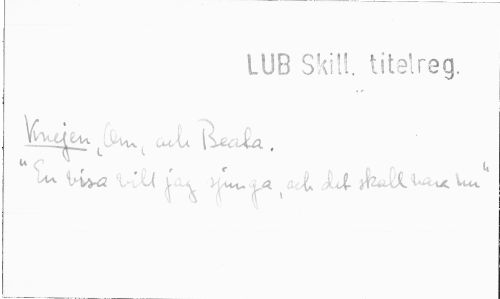 LUB Skill. titelreg.
Knejen, Om, och Beata.
"En visa vill jag sjunga, och det skall vara nu"